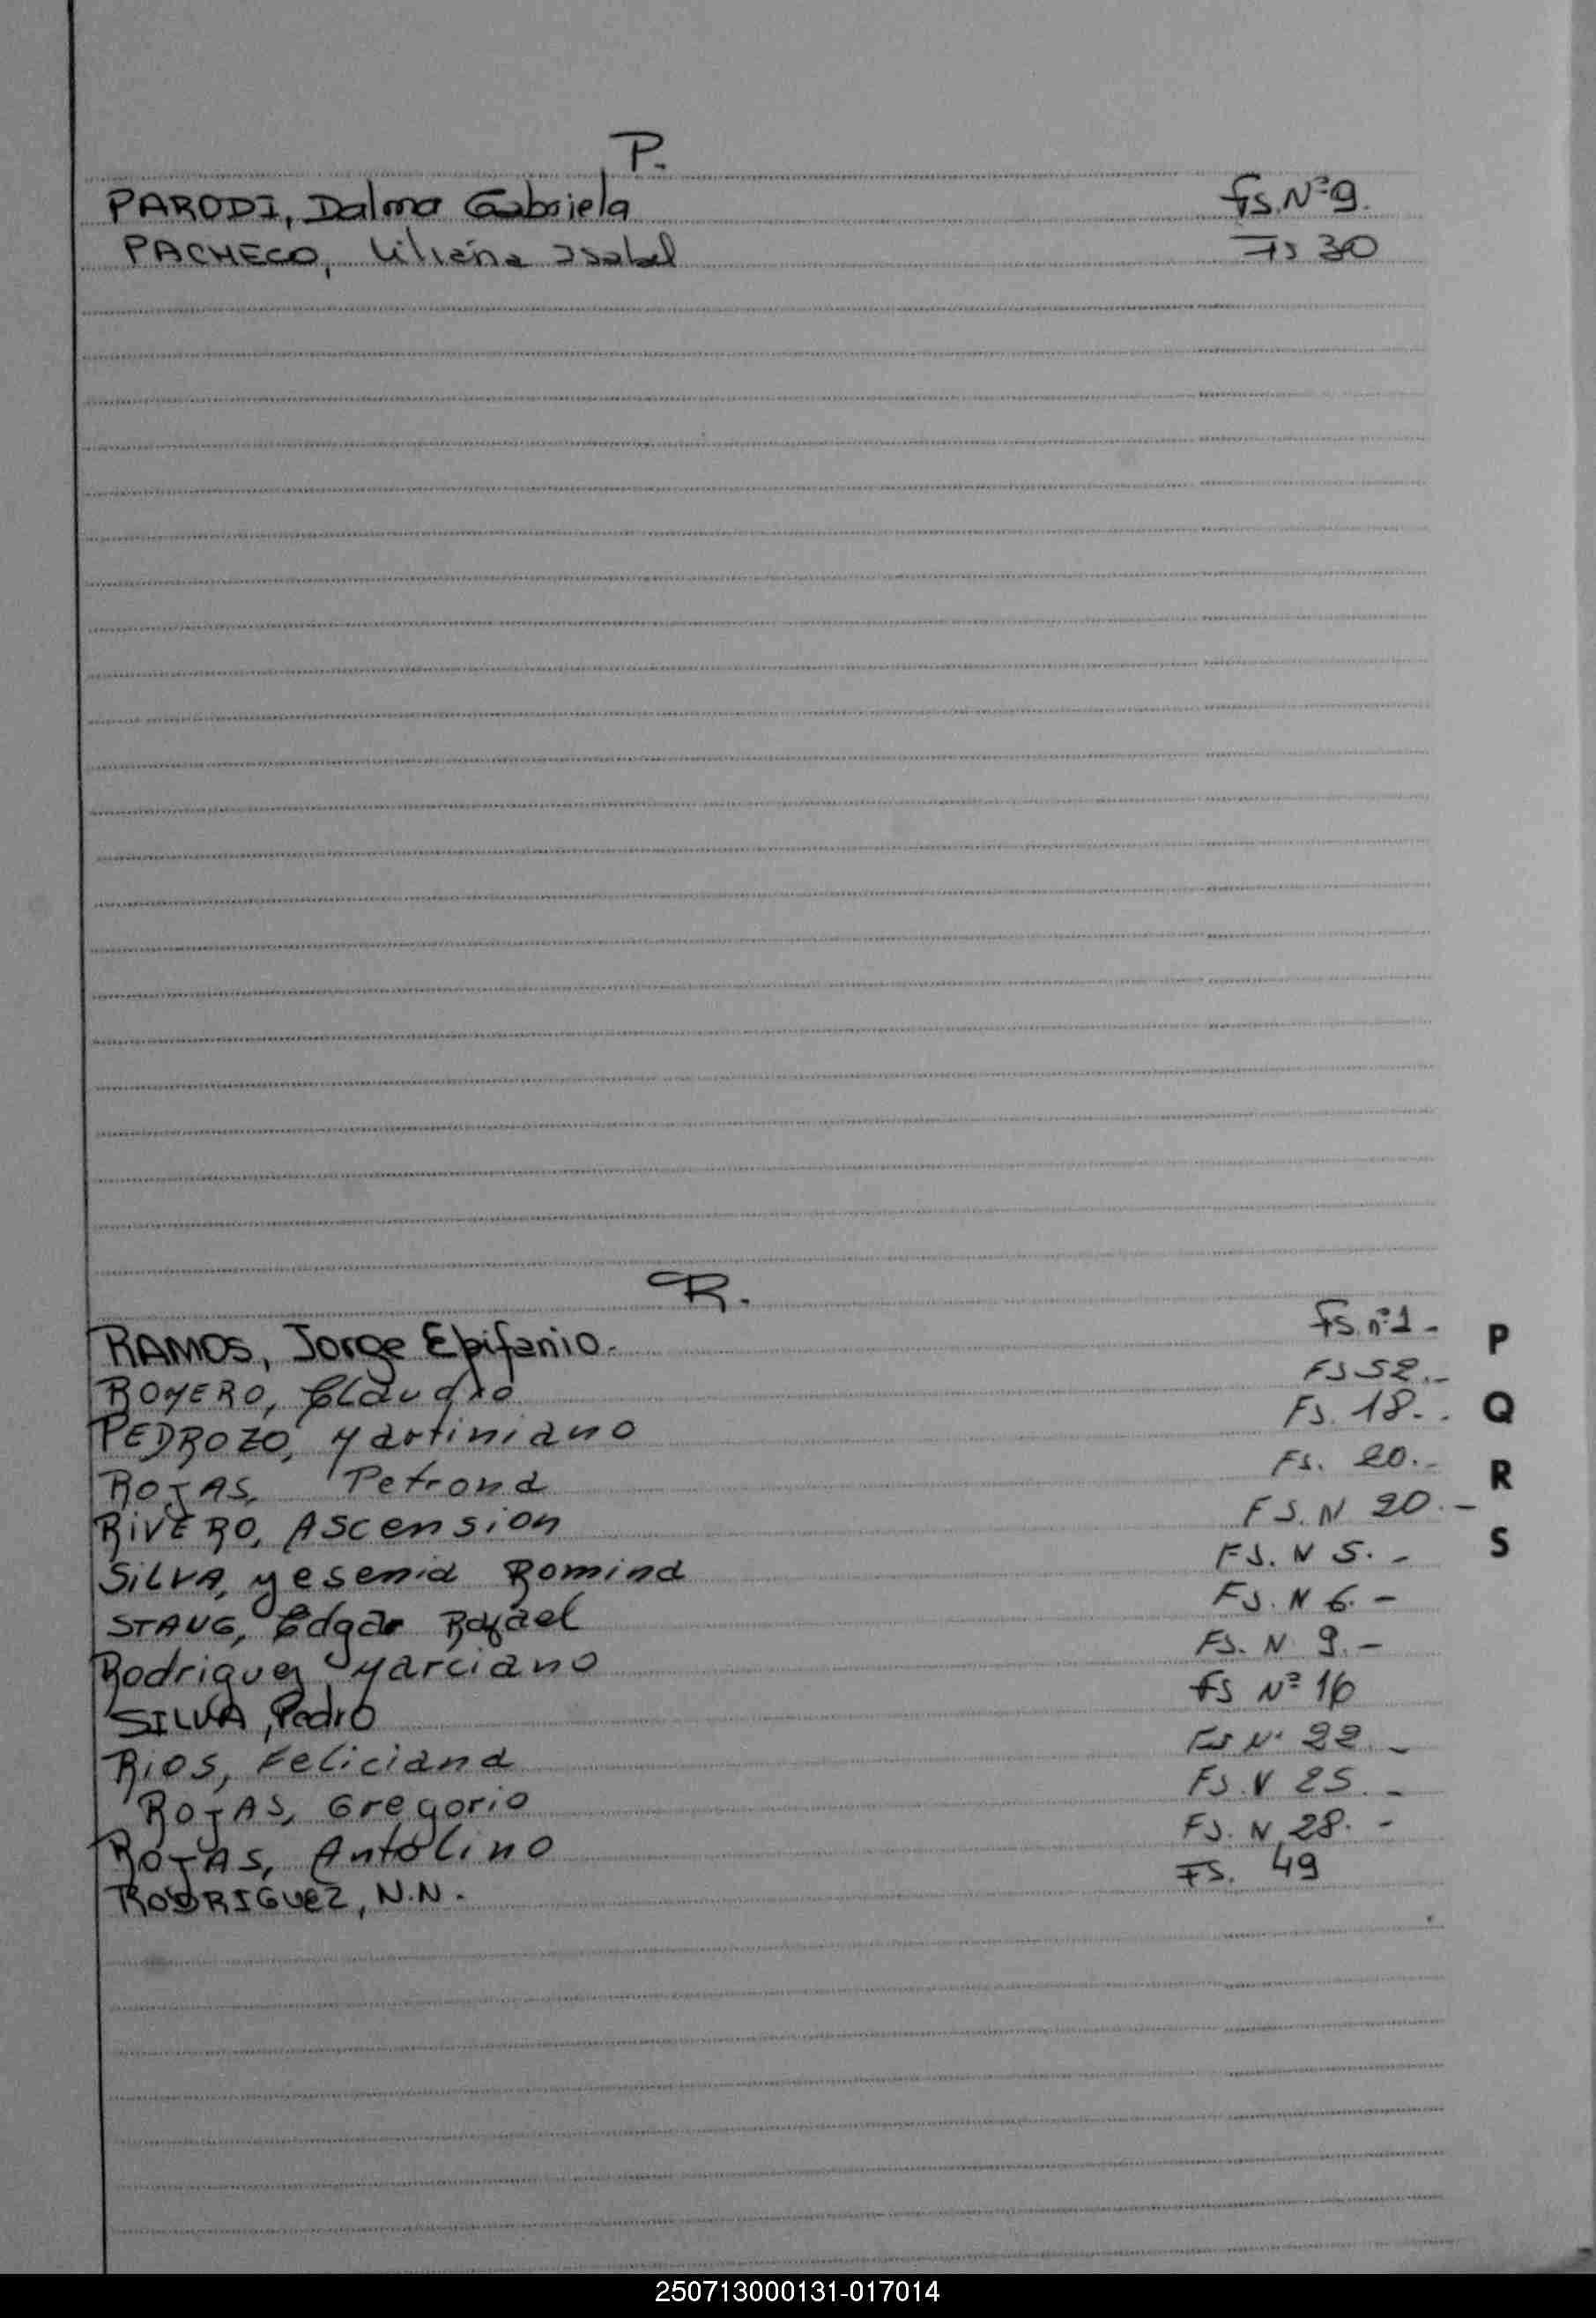 P.
PARODI, Dalma Gabriela Fs. Nº 9.
PACHECO, Liliana Isabel Fs 30
R.
RAMOS, Jorge Epifanio. Fs. nº 1 -
ROMERO, Claudio Fs 52.-
PEDROZO, Martiniano Fs. 18..
ROJAS, Petrona Fs. 20.-
RIVERO, Ascension FS. N 20.-
SILVA, Yesenia Romina FS. N 5.-
STAUG, Edgar Rafael FS. N 6.-
Rodriguez Marciano FS. N 9.-
SILVA, Pedro FS Nº 16
RIOS, Feliciana Fs Nº 22.-
ROJAS, Gregorio FS. N 25.-
ROJAS, Antolino FS. N 28.-
RODRIGUEZ, N.N. FS. 49
P
Q
R
S
250713000131-017014